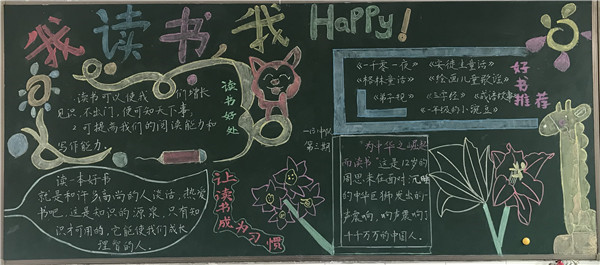 我读书我 Happy!
读书可以使我们增长
见识,不出门,便可知天下事,
2可提高我们的阅读能力和
写作能力。
读书好处
读一本好书
就是和许多高尚的人谈话,热爱
书吧,这是知识的源泉,只有知
识才可用的,它能使我们成长
理智的人。
让读书成为习惯
第三期
《一千零一夜》《安徒生童话》
《格林童话》《绘画儿童歌谣》
《弟子规》《三字经》《成语故事》
《一年级的小豌豆》
好书推荐
"为中华之崛起
而读书"这是12岁的
周恩来在面对沉睡
的中华巨狮发出的一
声轰响,响声轰响了
千千万万的中国人。